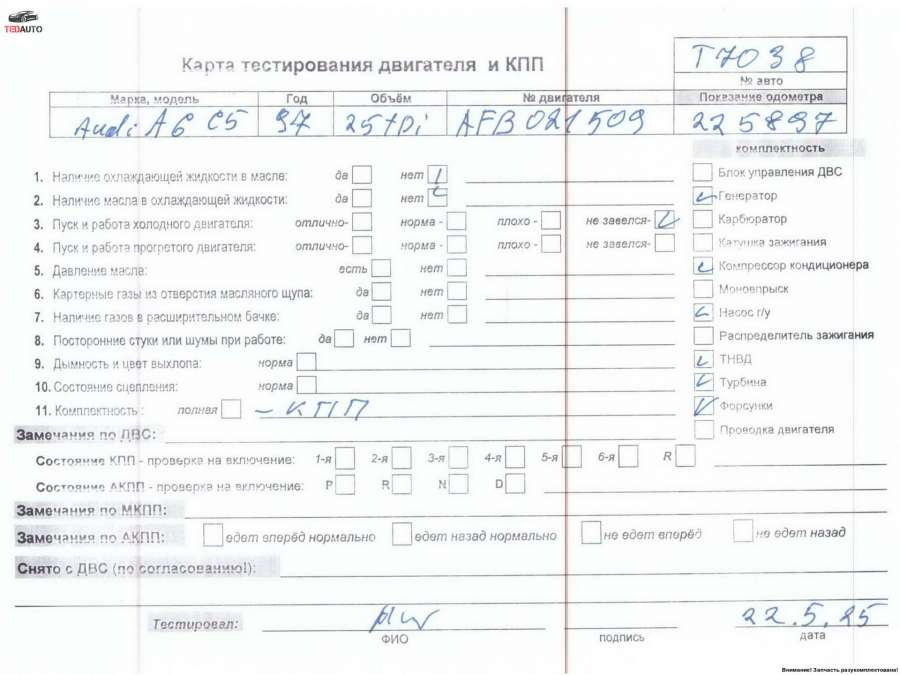 TEDAUTO
Т7038
Карта тестирования двигателя и КПП
№ авто
Марка, модель Год Объём № двигателя Показание одометра
Audi A6 C5 97 25 tDi AFB 021509 225897
комплектность
1. Наличие охлаждающей жидкости в масле: да нет
Блок управления ДВС
2. Наличие масла в охлаждающей жидкости: да нет
Генератор
3. Пуск и работа холодного двигателя: отлично- норма - плохо - не завелся-
Карбюратор
4. Пуск и работа прогретого двигателя: отлично- норма - плохо - не завелся-
Катушка зажигания
5. Давление масла: есть нет
Компрессор кондиционера
6. Картерные газы из отверстия масляного щупа: да нет
Моновпрыск
7. Наличие газов в расширительном бачке: да нет
Насос г/у
8. Посторонние стуки или шумы при работе: да нет
Распределитель зажигания
9. Дымность и цвет выхлопа: норма
ТНВД
10. Состояние сцепления: норма
Турбина
11. Комплектность : полная - КПП
Форсунки
Замечания по ДВС:
Проводка двигателя
Состояние КПП - проверка на включение: 1-я 2-я 3-я 4-я 5-я 6-я R
Состояние АКПП - проверка на включение: P R N D
Замечания по МКПП:
Замечания по АКПП: едет вперёд нормально едет назад нормально не едет вперёд не едет назад
Снято с ДВС (по согласованию!):
Тестировал: 22.5.25
ФИО подпись дата
Внимание! Запчасть разукомплектована!